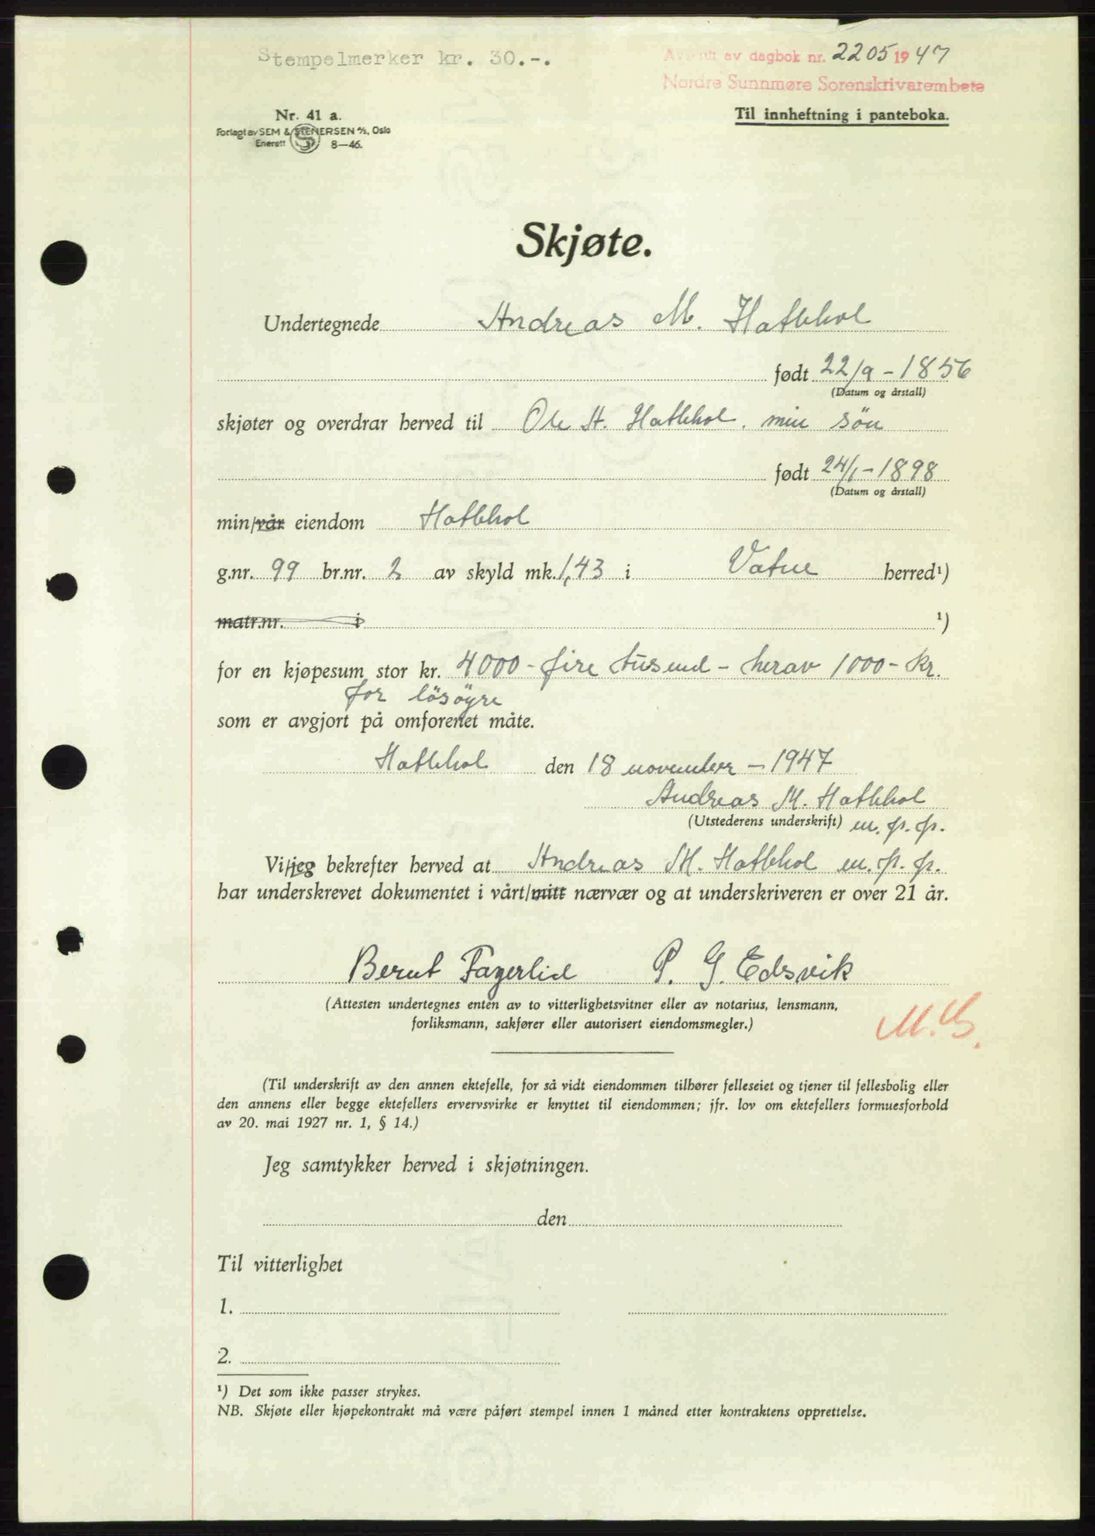 Stempelmerker kr. 30.-.
av dagbok nr. 2205 1947
Nordre Sunnmøre Sorenskrivarembete
Nr. 41 a.
Forlagt av SEM & STENERSEN A/S, Oslo
Enerett 8—46.
Til innheftning i panteboka.
Skjøte.
Undertegnede Andreas M. Hatlehol
født 22/9 - 1856
(Datum og årstall)
skjøter og overdrar herved til Ole A. Hatlehol, min søn
født 24/1 - 1898
(Datum og årstall)
min/vår eiendom Hatlehol
g.nr. 99 br.nr. 2 av skyld mk. 1,43 i Vatne herred¹)
matr.nr. i ¹)
for en kjøpesum stor kr. 4000 - fire tusend - herav 1000 - kr.
for løsøyre
som er avgjort på omforenet måte.
Hatlehol den 18 november - 1947
Andreas M. Hatlehol
(Utstederens underskrift) m. p. p.
Vi/jeg bekrefter herved at Andreas M. Hatlehol m. p. p.
har underskrevet dokumentet i vårt/mitt nærvær og at underskriveren er over 21 år.
Bernt Fagerlid P. G. Edsvik
(Attesten undertegnes enten av to vitterlighetsvitner eller av notarius, lensmann,
forliksmann, sakfører eller autorisert eiendomsmegler.)
(Til underskrift av den annen ektefelle, for så vidt eiendommen tilhører felleseiet og tjener til fellesbolig eller
den annens eller begge ektefellers ervervsvirke er knyttet til eiendommen; jfr. lov om ektefellers formuesforhold
av 20. mai 1927 nr. 1, § 14.)
Jeg samtykker herved i skjøtningen.
den
Til vitterlighet
1.
2.
¹) Det som ikke passer strykes.
NB. Skjøte eller kjøpekontrakt må være påført stempel innen 1 måned etter kontraktens opprettelse.